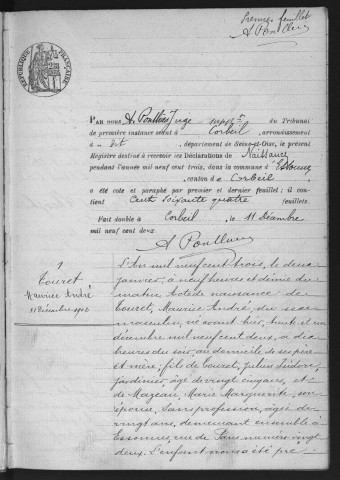 Premier feuillet
A Ponllier
RÉPUBLIQUE FRANÇAISE
PAR nous A. Ponllier Juge supp.t du Tribunal
de première instance séant à Corbeil, arrondissement
a dit, département de Seine-et-Oise, le présent
Registre destiné à recevoir les Déclarations de Naissance
pendant l'année mil neuf cent trois, dans la commune d'Essonnes
canton de Corbeil
a été coté et paraphé par premier et dernier feuillet; il contient
Cent soixante quatre feuillets.
Fait double à Corbeil, le 11 Décembre
mil neuf cent deux.
A Ponllier
1
Touret
Maurice André
31 Décembre 1902
L'an mil neuf cent trois, le deux
janvier, à neuf heures et demie du
matin, Acte de naissance de
Touret, Maurice André du sexe
masculin, né avant hier, trente et un
décembre mil neuf cent deux, à dix
heures du soir, au domicile de ses père
et mère; fils de Touret, Jules Isidore,
jardinier, âgé de vingt cinq ans, et
de Mazeau, Marie Marguerite, son
épouse, sans profession, âgée de
vingt ans, demeurant ensemble à
Essonnes, rue de Paris numéro vingt
deux. L'enfant nous a été pré